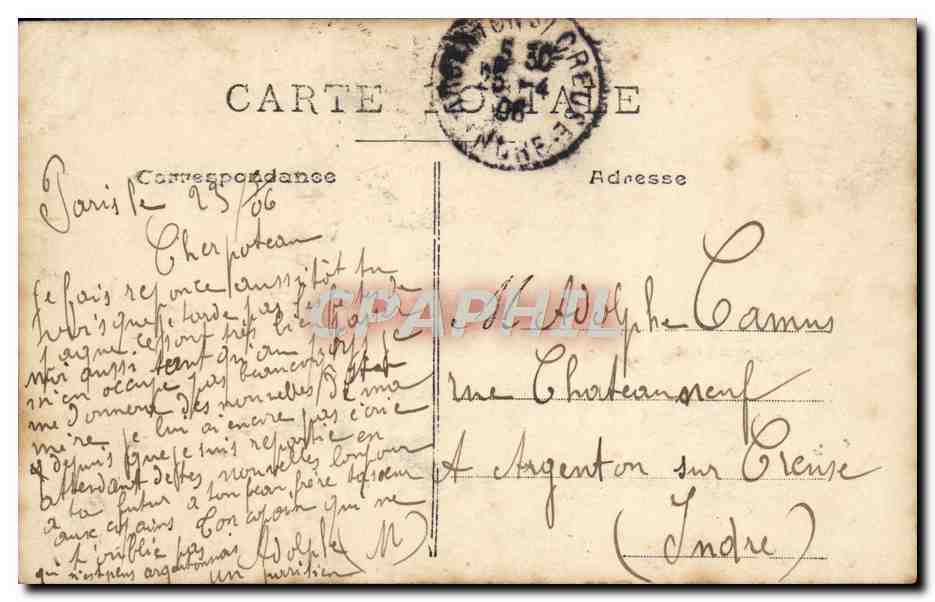 CARTE POSTALE
ARGENTON S/ CREUSE
5 30
15-4
06
INDRE
Correspondance
Adresse
Paris le 23/06
Cher poteau
je fais reponce aussitôt tu
vois que je tarde pas
sont très bien
moi aussi tant qu'au
m'en occupe pas beaucoup
me donnera des nouvelles de ma
mère je lui ai encore pas écrie
depuis que je suis repartie en
attendant de tes nouvelles bonjour
a ta futur a ton beau frère ta soeur
aux copains Ton copain qui ne
t'oublie pas Adolphe (M)
qui n'est pas argentonnais un parisien
M Adolphe Camus
rue Chateauneuf
A Argenton sur Creuse
(Indre)
CPAPHIL